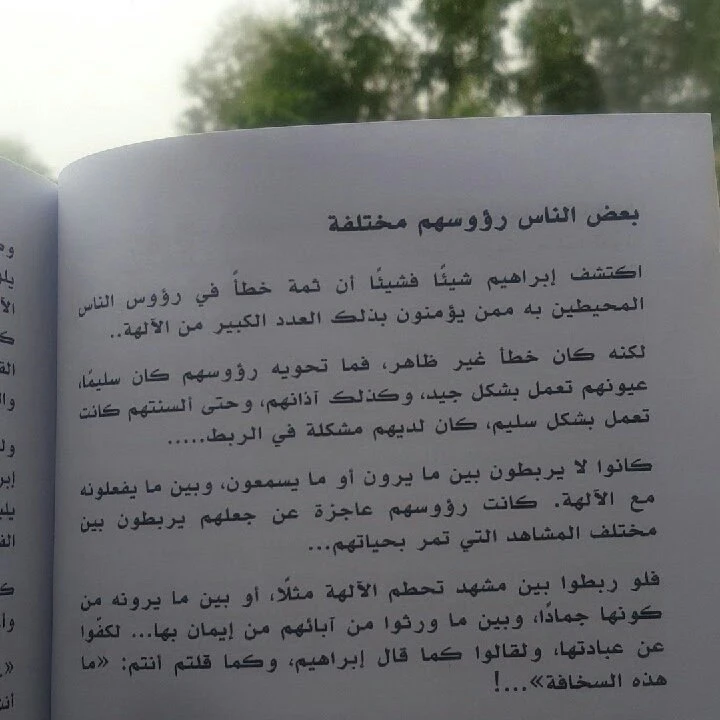 بعض الناس رؤوسهم مختلفة
اكتشف إبراهيم شيئًا فشيئًا أن ثمة خطأً في رؤوس الناس
المحيطين به ممن يؤمنون بذلك العدد الكبير من الآلهة..
لكنه كان خطأ غير ظاهر، فما تحويه رؤوسهم كان سليمًا،
عيونهم تعمل بشكل جيد، وكذلك آذانهم، وحتى ألسنتهم كانت
تعمل بشكل سليم، كان لديهم مشكلة في الربط.....
كانوا لا يربطون بين ما يرون أو ما يسمعون، وبين ما يفعلونه
مع الآلهة. كانت رؤوسهم عاجزة عن جعلهم يربطون بين
مختلف المشاهد التي تمر بحياتهم...
فلو ربطوا بين مشهد تحطم الآلهة مثلًا، أو بين ما يرونه من
كونها جمادًا، وبين ما ورثوا من آبائهم من إيمان بها... لكفّوا
عن عبادتها، ولقالوا كما قال إبراهيم، وكما قلتم أنتم: «ما
هذه السخافة»...!